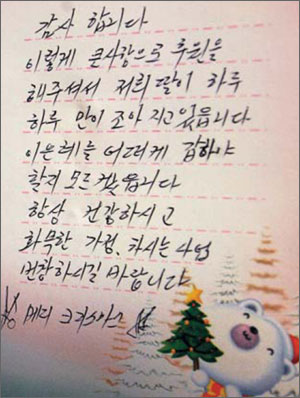 감사 합니다
이렇게 큰사랑으로 후원을
해주셔서 저희 딸이 하루
하루 만이 조아 지고 있읍니다
이은혜를 어떠게 갑하야
할지 모르겠읍니다
항상 건강하시고
화목한 가정, 하시는 사업
번창하시길 바랍니다
메리 크리스마스